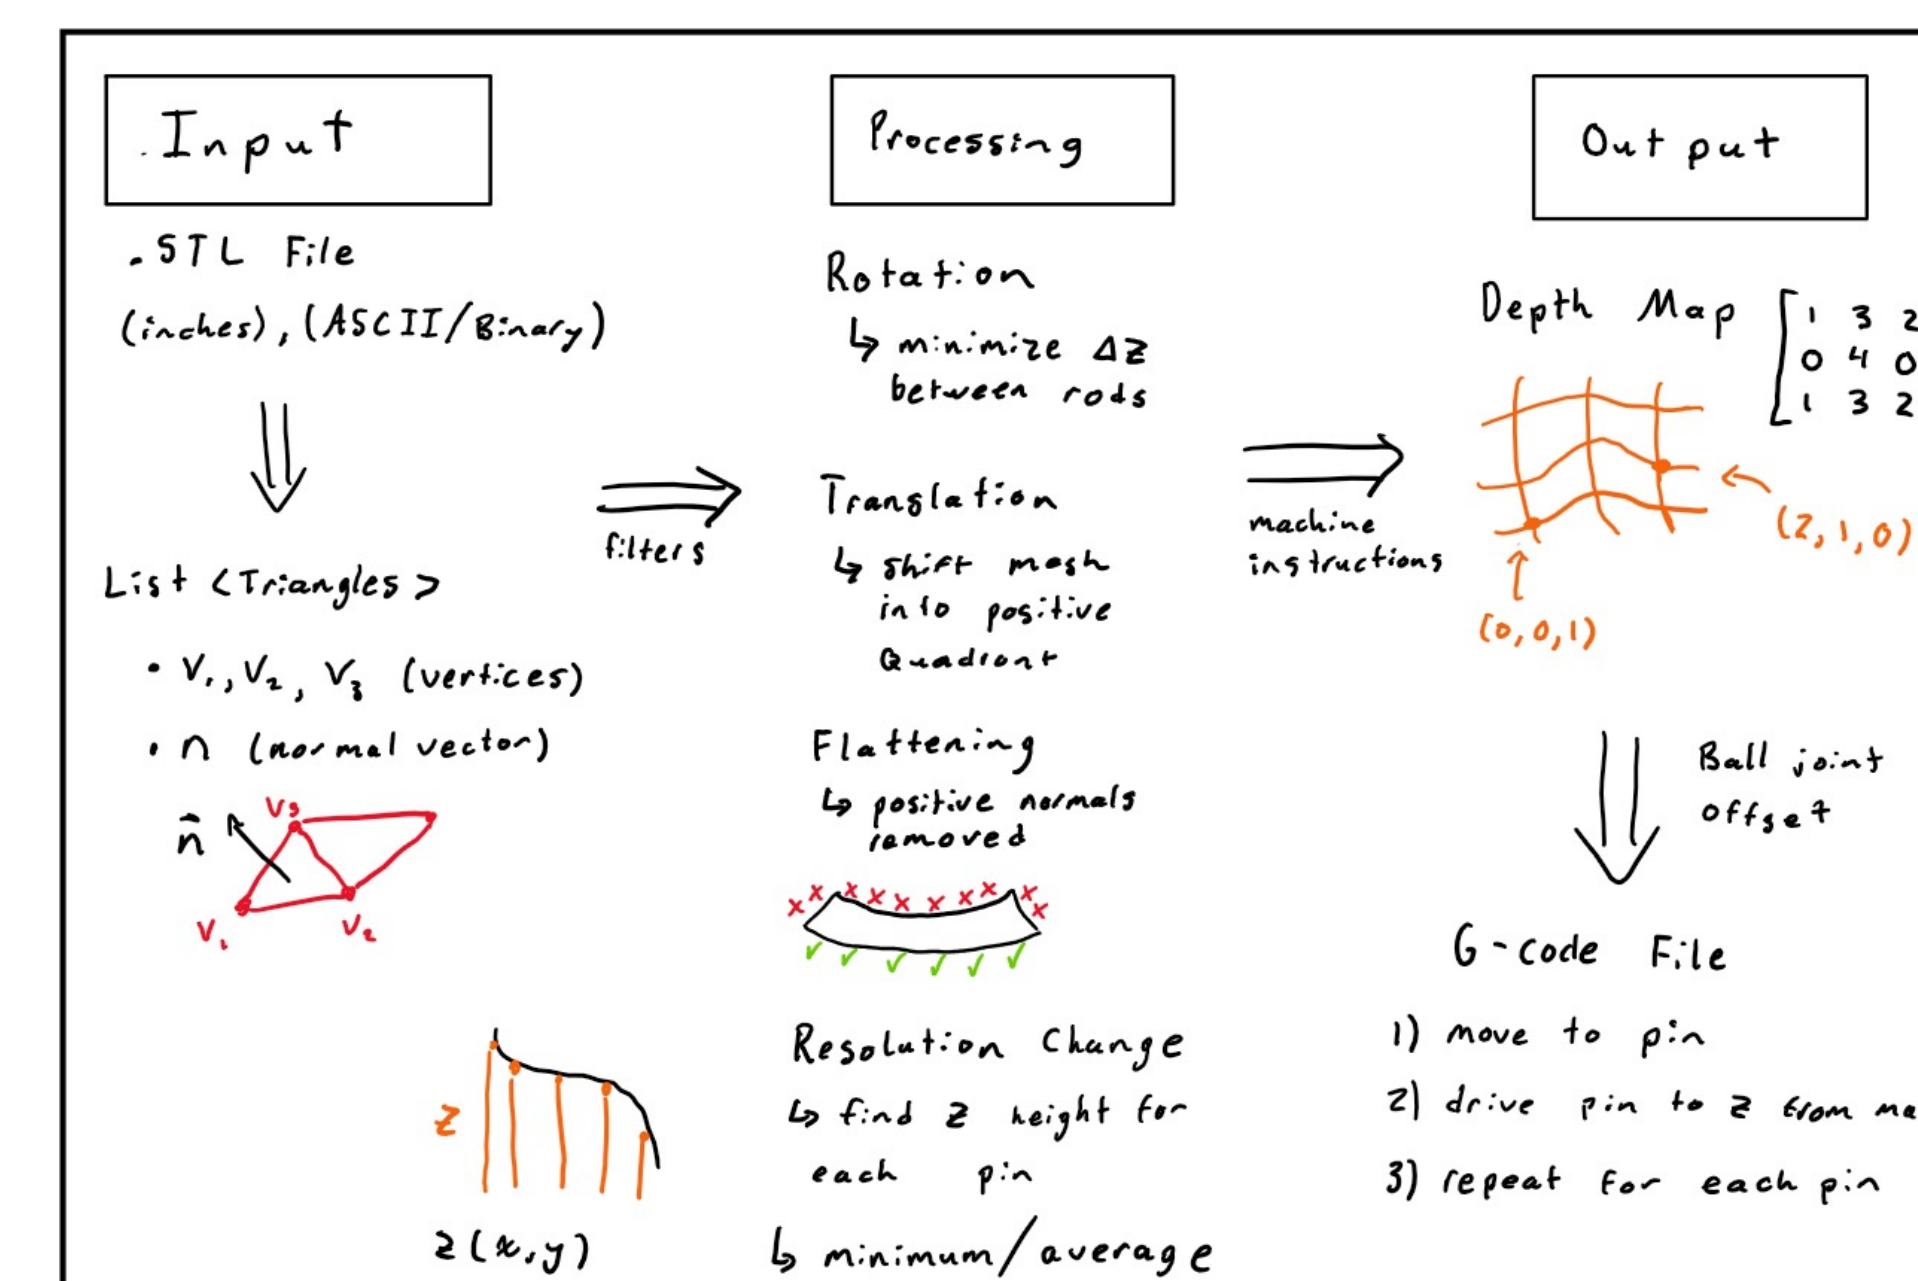 Input
.STL File
(inches), (ASCII/Binary)
List <Triangles>
• V₁, V₂, V₃ (vertices)
• n (normal vector)
n⃗
V₃
V₁
V₂
z
z(x,y)
filters
Processing
Rotation
↳ minimize Δz
between rods
Translation
↳ shift mesh
into positive
Quadrant
Flattening
↳ positive normals
removed
Resolution Change
↳ find z height for
each pin
↳ minimum/average
machine
instructions
Output
Depth Map
1 3 2
0 4 0
1 3 2
(2,1,0)
(0,0,1)
Ball joint
offset
G-code File
1) move to pin
2) drive pin to z from
3) repeat for each pin